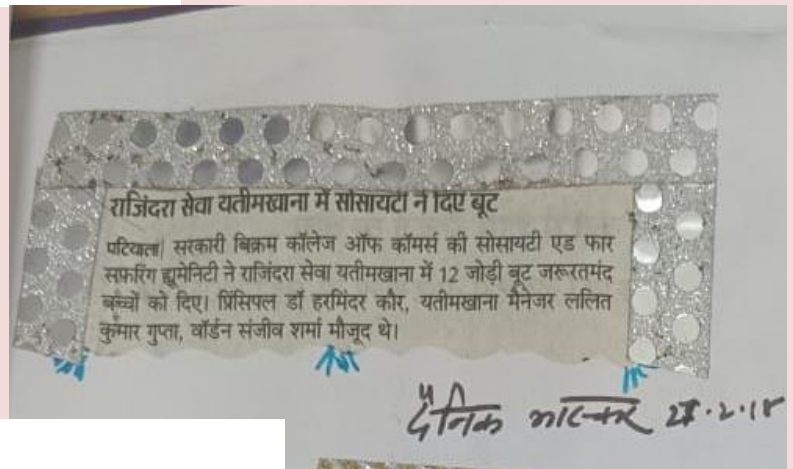 राजिंदरा सेवा यतीमखाना में सोसायटी ने दिए बूट
पटियाला| सरकारी बिक्रम कॉलेज ऑफ कॉमर्स की सोसायटी एड फार
सफरिंग ह्यूमेनिटी ने राजिंदरा सेवा यतीमखाना में 12 जोड़ी बूट जरूरतमंद
बच्चों को दिए। प्रिंसिपल डॉ हरमिंदर कौर, यतीमखाना मैनेजर ललित
कुमार गुप्ता, वॉर्डन संजीव शर्मा मौजूद थे।
दैनिक भास्कर